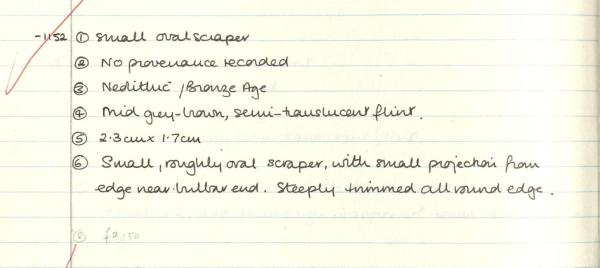 -1152 ① Small oval scraper
② No provenance recorded
③ Neolithic / Bronze Age
④ Mid grey-brown, semi-translucent flint.
⑤ 2.3cm x 1.7cm
⑥ Small, roughly oval scraper, with small projection from
edge near bulbar end. Steeply trimmed all round edge.
£2.50